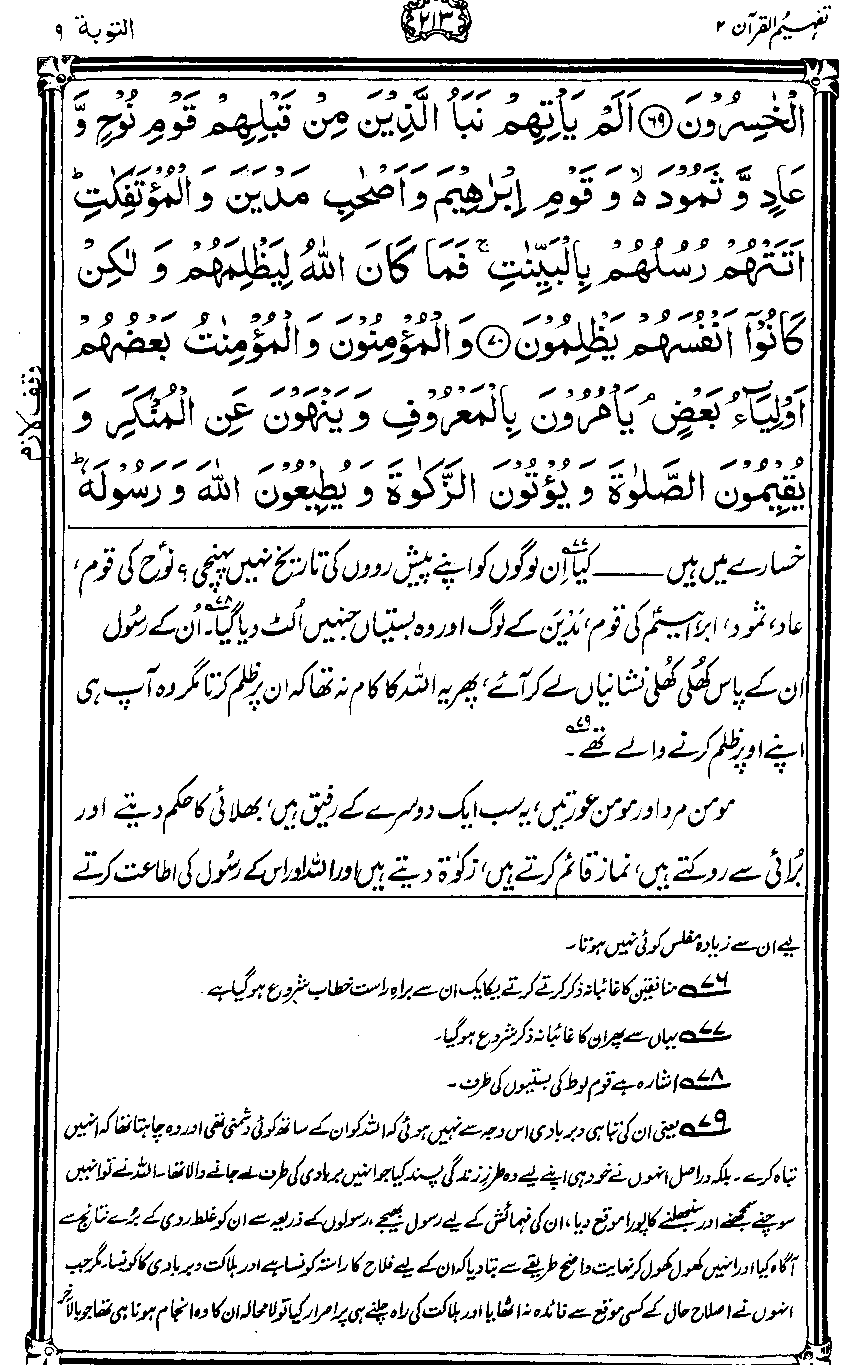 تفہیم القرآن ۲
۲۱۳
التوبة ۹
الْخٰسِرُوْنَ ﴿۶۹﴾ اَلَمْ يَاْتِهِمْ نَبَاُ الَّذِيْنَ مِنْ قَبْلِهِمْ قَوْمِ نُوْحٍ وَّ
عَادٍ وَّ ثَمُوْدَ ۙ وَ قَوْمِ اِبْرٰهِيْمَ وَ اَصْحٰبِ مَدْيَنَ وَ الْمُؤْتَفِكٰتِ ؕ
اَتَتْهُمْ رُسُلُهُمْ بِالْبَيِّنٰتِ ۚ فَمَا كَانَ اللّٰهُ لِيَظْلِمَهُمْ وَ لٰكِنْ
كَانُوْۤا اَنْفُسَهُمْ يَظْلِمُوْنَ ﴿۷۰﴾ وَ الْمُؤْمِنُوْنَ وَ الْمُؤْمِنٰتُ بَعْضُهُمْ
اَوْلِيَآءُ بَعْضٍ ۘ يَاْمُرُوْنَ بِالْمَعْرُوْفِ وَ يَنْهَوْنَ عَنِ الْمُنْكَرِ وَ
يُقِيْمُوْنَ الصَّلٰوةَ وَ يُؤْتُوْنَ الزَّكٰوةَ وَ يُطِيْعُوْنَ اللّٰهَ وَ رَسُوْلَهٗ ؕ
وقف لازم
خسارے میں ہیں ـــــــ کیا ۷۷ اِن لوگوں کو اپنے پیش رووں کی تاریخ نہیں پہنچی؟ نوحؑ کی قوم،
عاد، ثمود، ابراہیمؑ کی قوم، مَدْیَن کے لوگ اور وہ بستیاں جنہیں اُلٹ دیا گیا ۷۸۔ اُن کے رسُول
ان کے پاس کھُلی کھُلی نشانیاں لے کر آئے، پھر یہ اللہ کا کام نہ تھا کہ ان پر ظلم کرتا مگر وہ آپ ہی
اپنے اوپر ظلم کرنے والے تھے ۷۹۔
مومن مرد اور مومن عورتیں، یہ سب ایک دوسرے کے رفیق ہیں، بھلائی کا حکم دیتے اور
بُرائی سے روکتے ہیں، نماز قائم کرتے ہیں، زکوٰة دیتے ہیں اور اللہ اور اس کے رسُول کی اطاعت کرتے
لیے ان سے زیادہ مفلس کوئی نہیں ہوتا۔
۷۶ منافقین کا غائبانہ ذکر کرتے کرتے یکایک ان سے براہِ راست خطاب شروع ہو گیا ہے۔
۷۷ یہاں سے پھر ان کا غائبانہ ذکر شروع ہو گیا۔
۷۸ اشارہ ہے قوم لوط کی بستیوں کی طرف۔
۷۹ یعنی ان کی تباہی و بربادی اس وجہ سے نہیں ہوئی کہ اللہ کو ان کے ساتھ کوئی دشمنی تھی اور وہ چاہتا تھا کہ انہیں
تباہ کرے۔ بلکہ دراصل انہوں نے خود ہی اپنے لیے وہ طرزِ زندگی پسند کیا جو انہیں بربادی کی طرف لے جانے والا تھا۔ اللہ نے تو انہیں
سوچنے سمجھنے اور سنبھلنے کا پورا موقع دیا، ان کی فہمائش کے لیے رسول بھیجے، رسولوں کے ذریعہ سے ان کو غلط روی کے بُرے نتائج سے
آگاہ کیا اور انہیں کھول کھول کر نہایت واضح طریقے سے بتا دیا کہ ان کے لیے فلاح کا راستہ کونسا ہے اور ہلاکت و بربادی کا کونسا۔ مگر جب
انہوں نے اصلاح حال کے کسی موقع سے فائدہ نہ اٹھایا اور ہلاکت کی راہ چلنے ہی پر اصرار کیا تو لا محالہ ان کا وہ انجام ہونا ہی تھا جو بالآخر